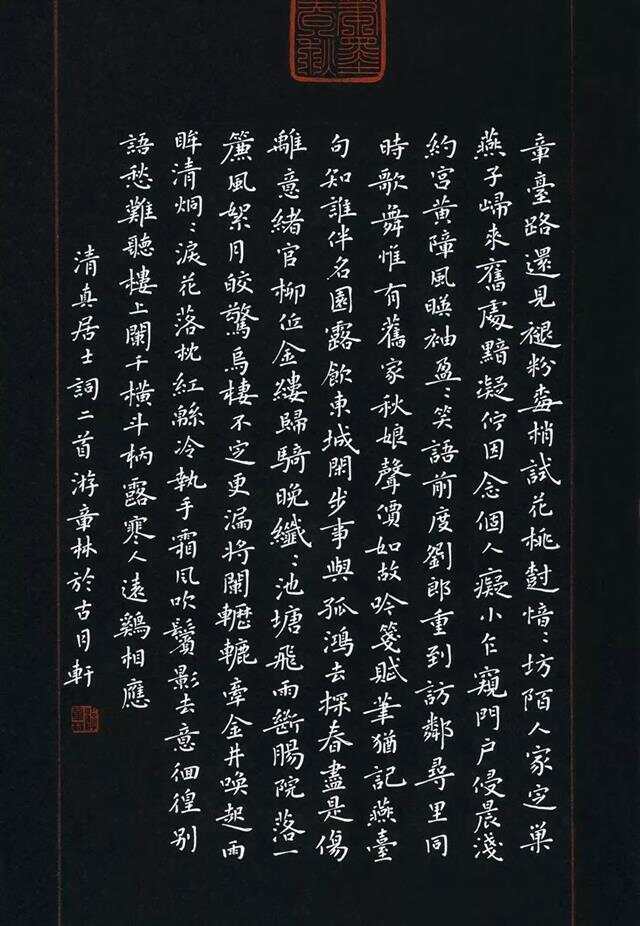 章臺路還見褪粉梅梢試花桃樹愔〻坊陌人家定巢
燕子歸來舊處黯凝佇因念個人癡小乍窺門户侵晨淺
約宮黃障風暎袖盈〻笑語前度劉郎重到訪鄰尋里同
時歌舞惟有舊家秋娘聲價如故吟箋賦筆猶記燕臺
句知誰伴名園露飲東城閑步事與孤鴻去探春盡是傷
離意緒官柳低金縷歸騎晚纖〻池塘飛雨斷腸院落一
簾風絮月皎驚烏棲不定更漏將闌轣轆牽金井喚起兩
眸清炯〻淚花落枕紅緜冷執手霜風吹鬢影去意徊徨別
語愁難聽樓上闌干橫斗柄露寒人遠鷄相應
清真居士詞二首游章林於古月軒